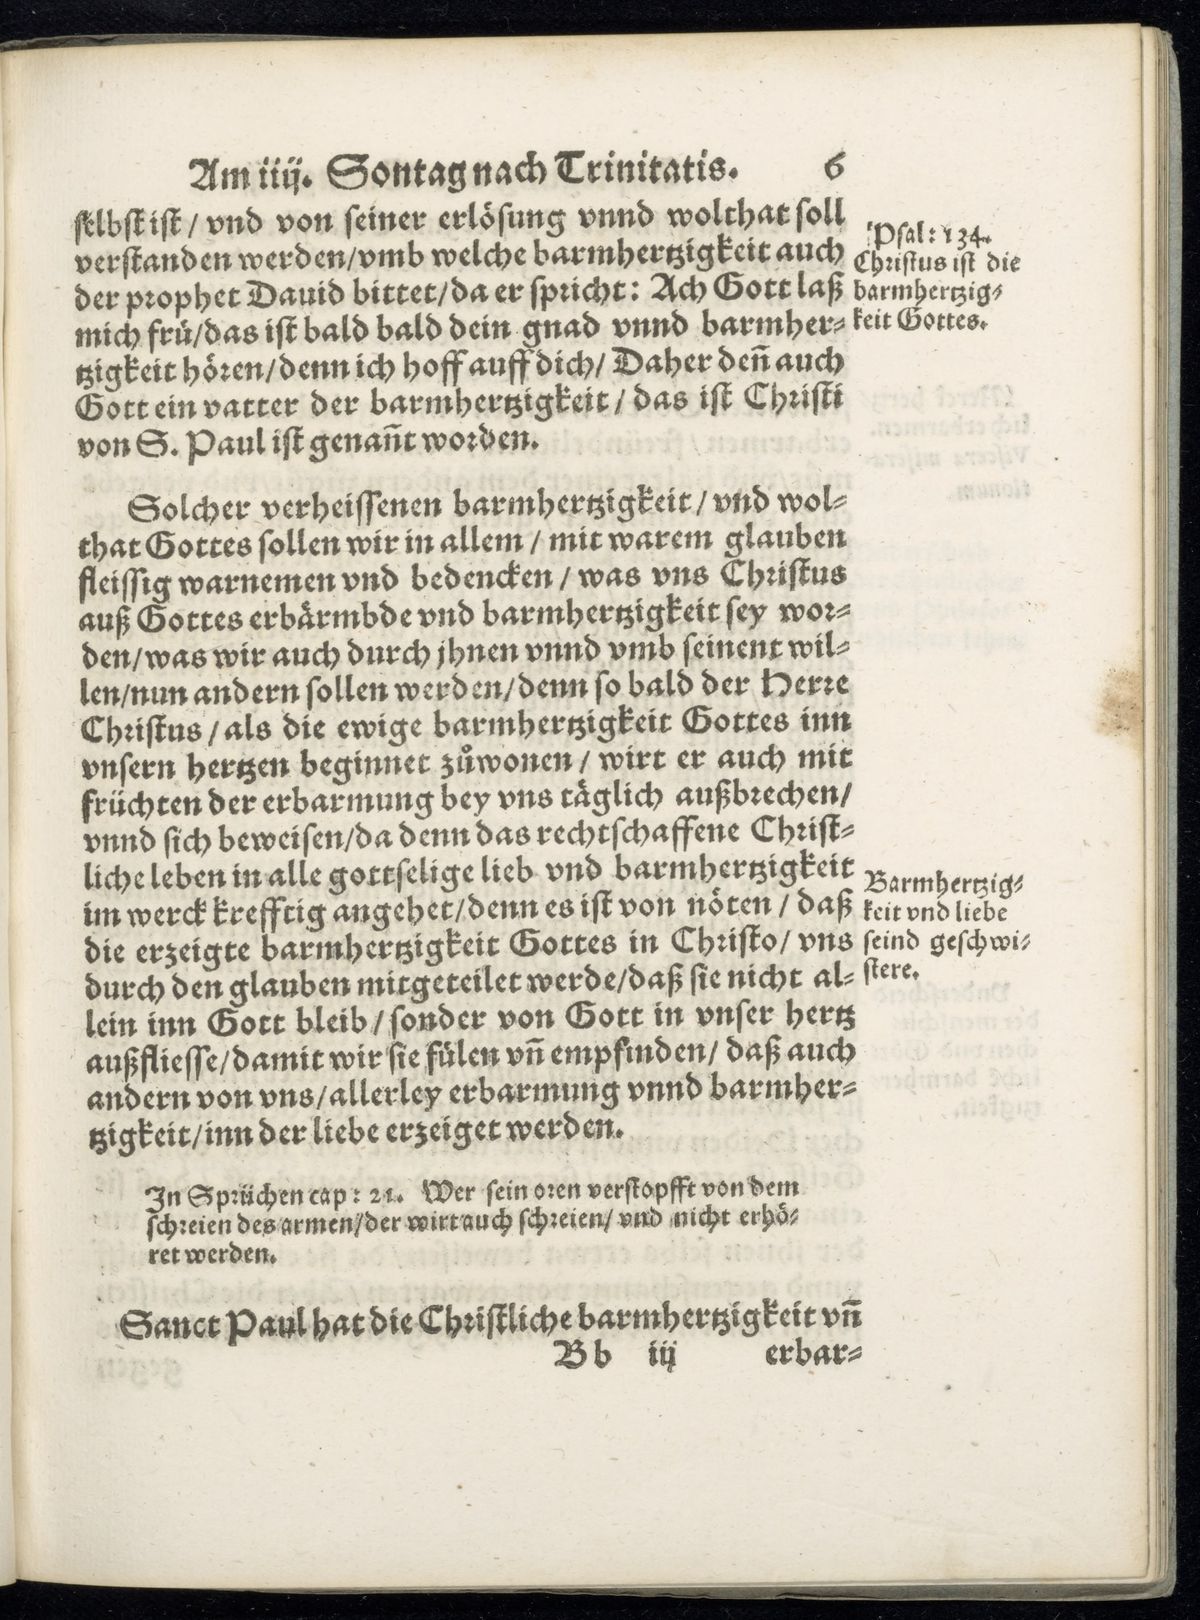 Am iiij. Sontag nach Trinitatis. 6
selbst ist / vnd von seiner erlösung vnnd wolthat soll
verstanden werden/vmb welche barmhertzigkeit auch
der prophet Dauid bittet/da er spricht: Ach Gott laß
mich frü/das ist bald bald dein gnad vnnd barmher=
tzigkeit hören/denn ich hoff auff dich/ Daher deñ auch
Gott ein vatter der barmhertzigkeit / das ist Christi
von S. Paul ist genañt worden.
Psal: 134.
Christus ist die
barmhertzig=
keit Gottes.
Solcher verheissenen barmhertzigkeit / vnd wol=
that Gottes sollen wir in allem / mit warem glauben
fleissig warnemen vnd bedencken / was vns Christus
auß Gottes erbärmbde vnd barmhertzigkeit sey wor=
den/was wir auch durch jhnen vnnd vmb seinent wil=
len/nun andern sollen werden/denn so bald der Herre
Christus / als die ewige barmhertzigkeit Gottes inn
vnsern hertzen beginnet zůwonen / wirt er auch mit
früchten der erbarmung bey vns täglich außbrechen/
vnnd sich beweisen/da denn das rechtschaffene Christ=
liche leben in alle gottselige lieb vnd barmhertzigkeit
im werck krefftig angehet/denn es ist von nöten / daß
die erzeigte barmhertzigkeit Gottes in Christo/ vns
durch den glauben mitgeteilet werde/daß sie nicht al=
lein inn Gott bleib / sonder von Gott in vnser hertz
außfliesse/damit wir sie fülen vñ empfinden/ daß auch
andern von vns/allerley erbarmung vnnd barmher=
tzigkeit/inn der liebe erzeiget werden.
Barmhertzig=
keit vnd liebe
seind geschwi=
stere.
In Sprüchen cap: 21. Wer sein oren verstopfft von dem
schreien des armen/der wirt auch schreien/ vnd nicht erhö=
ret werden.
Sanct Paul hat die Christliche barmhertzigkeit vñ
Bb iij erbar=